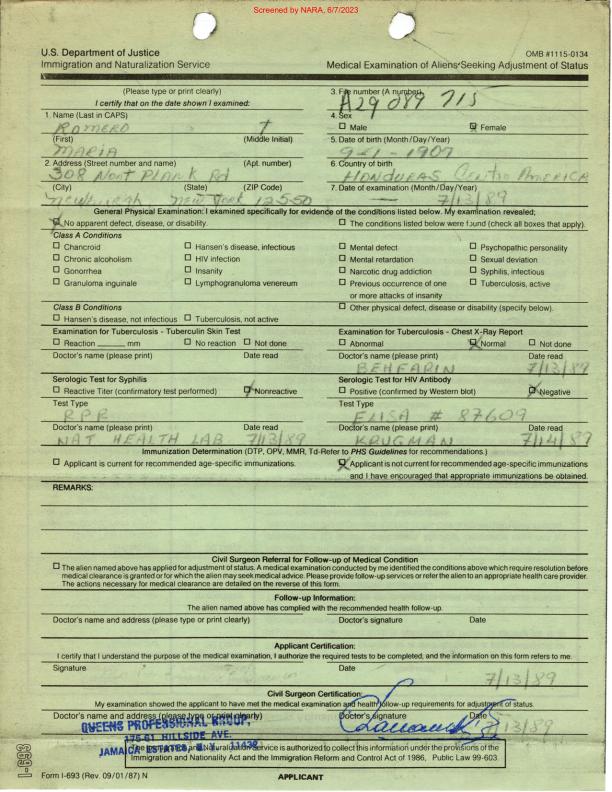 Screened by NARA, 6/7/2023
U.S. Department of Justice
Immigration and Naturalization Service
OMB #1115-0134
Medical Examination of Aliens Seeking Adjustment of Status
(Please type or print clearly)
I certify that on the date shown I examined:
3. File number (A number)
A29 089 715
1. Name (Last in CAPS)
ROMERO
4. Sex
☐ Male ☒ Female
(First) (Middle Initial)
MARIA
5. Date of birth (Month/Day/Year)
1907
2. Address (Street number and name) (Apt. number)
308 Plank Rd
6. Country of birth
HONDURAS Centro AMERICA
(City) (State) (ZIP Code)
newburgh new York 12550
7. Date of examination (Month/Day/Year)
7/13/89
General Physical Examination: I examined specifically for evidence of the conditions listed below. My examination revealed;
☒ No apparent defect, disease, or disability. ☐ The conditions listed below were found (check all boxes that apply).
Class A Conditions
☐ Chancroid ☐ Hansen's disease, infectious ☐ Mental defect ☐ Psychopathic personality
☐ Chronic alcoholism ☐ HIV infection ☐ Mental retardation ☐ Sexual deviation
☐ Gonorrhea ☐ Insanity ☐ Narcotic drug addiction ☐ Syphilis, infectious
☐ Granuloma inguinale ☐ Lymphogranuloma venereum ☐ Previous occurrence of one ☐ Tuberculosis, active
or more attacks of insanity
Class B Conditions
☐ Other physical defect, disease or disability (specify below).
☐ Hansen's disease, not infectious ☐ Tuberculosis, not active
Examination for Tuberculosis - Tuberculin Skin Test
☐ Reaction ______ mm ☐ No reaction ☐ Not done
Doctor's name (please print) Date read
Examination for Tuberculosis - Chest X-Ray Report
☐ Abnormal ☒ Normal ☐ Not done
Doctor's name (please print) Date read
BEHFARIN 7/13/89
Serologic Test for Syphilis
☐ Reactive Titer (confirmatory test performed) ☒ Nonreactive
Test Type
RPR
Doctor's name (please print) Date read
NAT HEALTH LAB 7/13/89
Serologic Test for HIV Antibody
☐ Positive (confirmed by Western blot) ☒ Negative
Test Type
ELISA # 87609
Doctor's name (please print) Date read
KRUGMAN 7/14/89
Immunization Determination (DTP, OPV, MMR, Td-Refer to PHS Guidelines for recommendations.)
☐ Applicant is current for recommended age-specific immunizations.
☒ Applicant is not current for recommended age-specific immunizations
and I have encouraged that appropriate immunizations be obtained.
REMARKS:
Civil Surgeon Referral for Follow-up of Medical Condition
☐ The alien named above has applied for adjustment of status. A medical examination conducted by me identified the conditions above which require resolution before
medical clearance is granted or for which the alien may seek medical advice. Please provide follow-up services or refer the alien to an appropriate health care provider.
The actions necessary for medical clearance are detailed on the reverse of this form.
Follow-up Information:
The alien named above has complied with the recommended health follow-up.
Doctor's name and address (please type or print clearly) Doctor's signature Date
Applicant Certification:
I certify that I understand the purpose of the medical examination, I authorize the required tests to be completed, and the information on this form refers to me.
Signature Date
7/13/89
Civil Surgeon Certification:
My examination showed the applicant to have met the medical examination and health follow-up requirements for adjustment of status.
Doctor's name and address (please type or print clearly) Doctor's signature Date
QUEENS PROFESSIONAL GROUP,
175-61 HILLSIDE AVE.
JAMAICA ESTATES, N.Y. 11432
7/13/89
The Immigration and Naturalization Service is authorized to collect this information under the provisions of the
Immigration and Nationality Act and the Immigration Reform and Control Act of 1986, Public Law 99-603.
I-693
Form I-693 (Rev. 09/01/87) N
APPLICANT